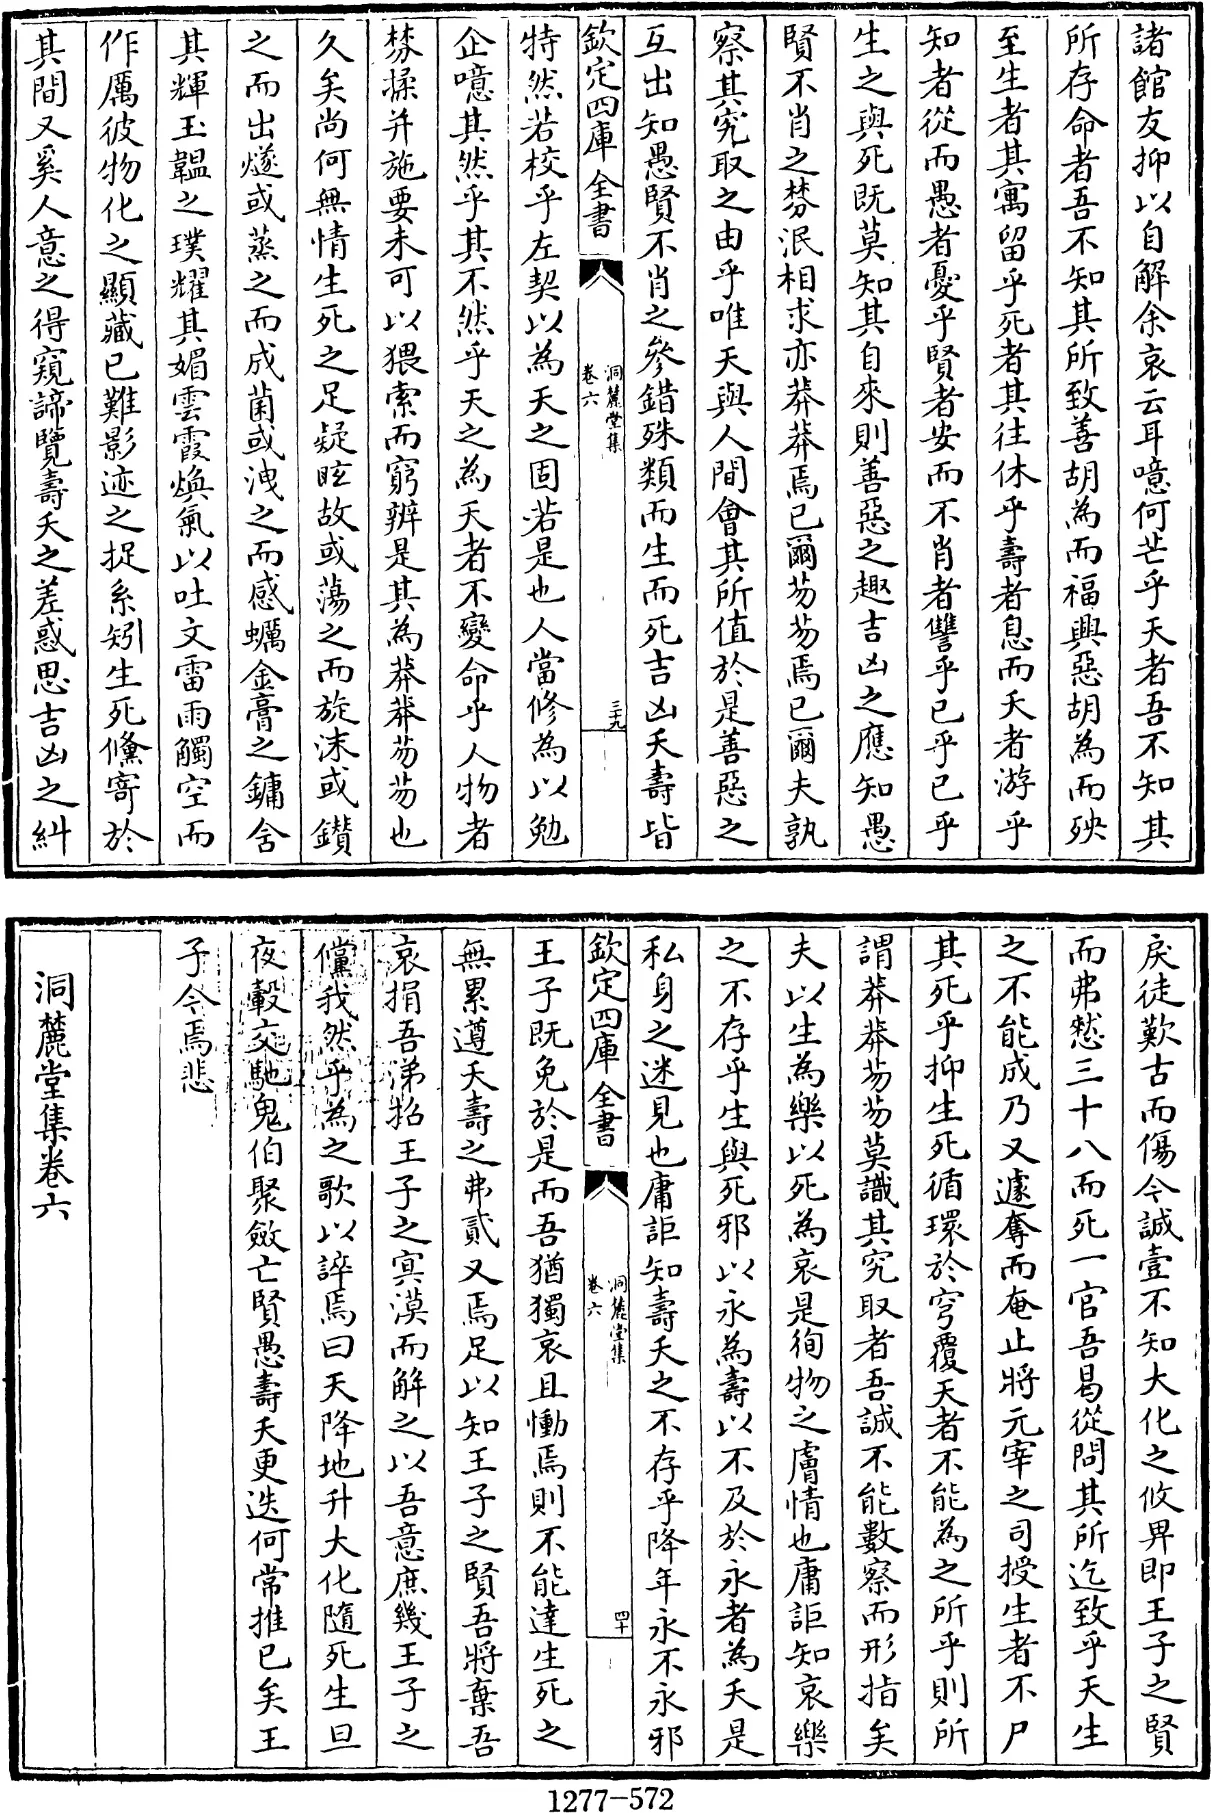 諸館友抑以自解余哀云耳噫何芒乎天者吾不知其
所存命者吾不知其所致善胡為而福興惡胡為而殃
至生者其寓留乎死者其往休乎壽者息而夭者游乎
知者從而愚者憂乎賢者安而不肖者讐乎已乎已乎
生之與死既莫知其自來則善惡之趣吉凶之應知愚
賢不肖之棼泯相求亦莽莽焉已爾芴芴焉已爾夫孰
察其究取之由乎唯天與人間會其所值於是善惡之
互出知愚賢不肖之參錯殊類而生而死吉凶夭壽皆
欽定四庫全書
洞麓堂集
卷六
三十九
特然若校乎左契以為天之固若是也人當修為以勉
企噫其然乎其不然乎天之為天者不變命乎人物者
棼揉并施要未可以猥索而窮辨是其為莽莽芴芴也
久矣尚何無情生死之足疑眩故或蕩之而旋沫或鑚
之而出燧或蒸之而成菌或洩之而感蠣金膏之鏞含
其輝玉韞之璞耀其媚雲霞煥氣以吐文雷雨觸空而
作厲彼物化之顯藏已難影迹之捉系矧生死儵寄於
其間又奚人意之得窺諦覽壽夭之差惑思吉凶之糾
戾徒歎古而傷今誠壹不知大化之攸畀即王子之賢
而弗憖三十八而死一官吾曷從問其所迄致乎天生
之不能成乃又遽奪而奄止將元宰之司授生者不尸
其死乎抑生死循環於穹覆天者不能為之所乎則所
謂莽莽芴芴莫識其究取者吾誠不能數察而形指矣
夫以生為樂以死為哀是徇物之膚情也庸詎知哀樂
之不存乎生與死邪以永為壽以不及於永者為夭是
私身之迷見也庸詎知壽夭之不存乎降年永不永邪
欽定四庫全書
洞麓堂集
卷六
四十
王子既免於是而吾猶獨哀且慟焉則不能達生死之
無累遵夭壽之弗貳又焉足以知王子之賢吾將棄吾
哀捐吾涕招王子之冥漠而解之以吾意庶幾王子之
儻我然乎為之歌以誶焉曰天降地升大化隨死生旦
夜轂交馳鬼伯聚斂亡賢愚壽夭更迭何常推已矣王
子今焉悲
洞麓堂集卷六
1277-572